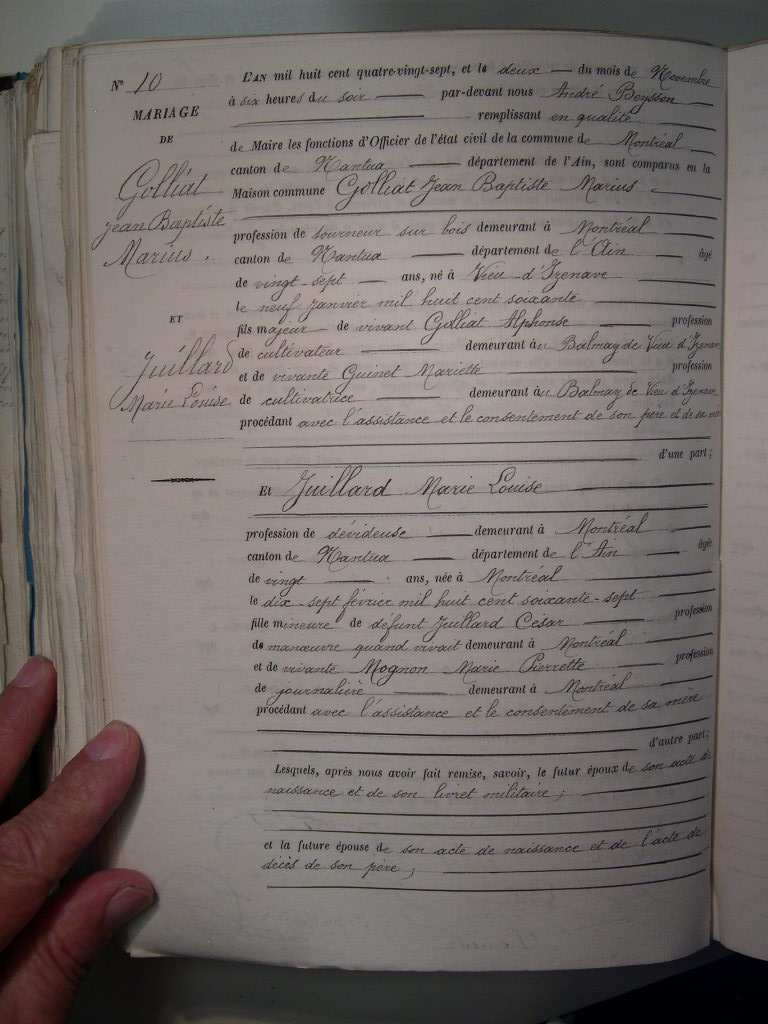 N° 10
MARIAGE
DE
Golliat
Jean Baptiste
Marius.
ET
Juillard
Marie Louise
L'AN mil huit cent quatre-vingt-sept, et le deux du mois de Novembre
à six heures du soir par-devant nous André Beysson
remplissant en qualité
de Maire les fonctions d'Officier de l'état civil de la commune de Montréal
canton de Nantua département de l'Ain, sont comparus en la
Maison commune Golliat Jean Baptiste Marius
profession de tourneur sur bois demeurant à Montréal
canton de Nantua département de l'Ain âgé
de vingt-sept ans, né à Vieu d'Izenave
le neuf janvier mil huit cent soixante
fils majeur de vivant Golliat Alphonse profession
de cultivateur demeurant au Balmay de Vieu d'Izenave
et de vivante Guinet Mariette profession
de cultivatrice demeurant au Balmay de Vieu d'Izenave
procédant avec l'assistance et le consentement de son père et de sa
d'une part;
Et Juillard Marie Louise
profession de dévideuse demeurant à Montréal
canton de Nantua département de l'Ain âgé
de vingt ans, née à Montréal
le dix-sept février mil huit cent soixante-sept
fille mineure de défunt Juillard César profession
de manœuvre quand vivait demeurant à Montréal
et de vivante Mognon Marie Pierrette profession
de journalière demeurant à Montréal
procédant avec l'assistance et le consentement de sa mère
d'autre part;
Lesquels, après nous avoir fait remise, savoir, le futur époux de son acte de
naissance et de son livret militaire;
et la future épouse de son acte de naissance et de l'acte de
décès de son père;